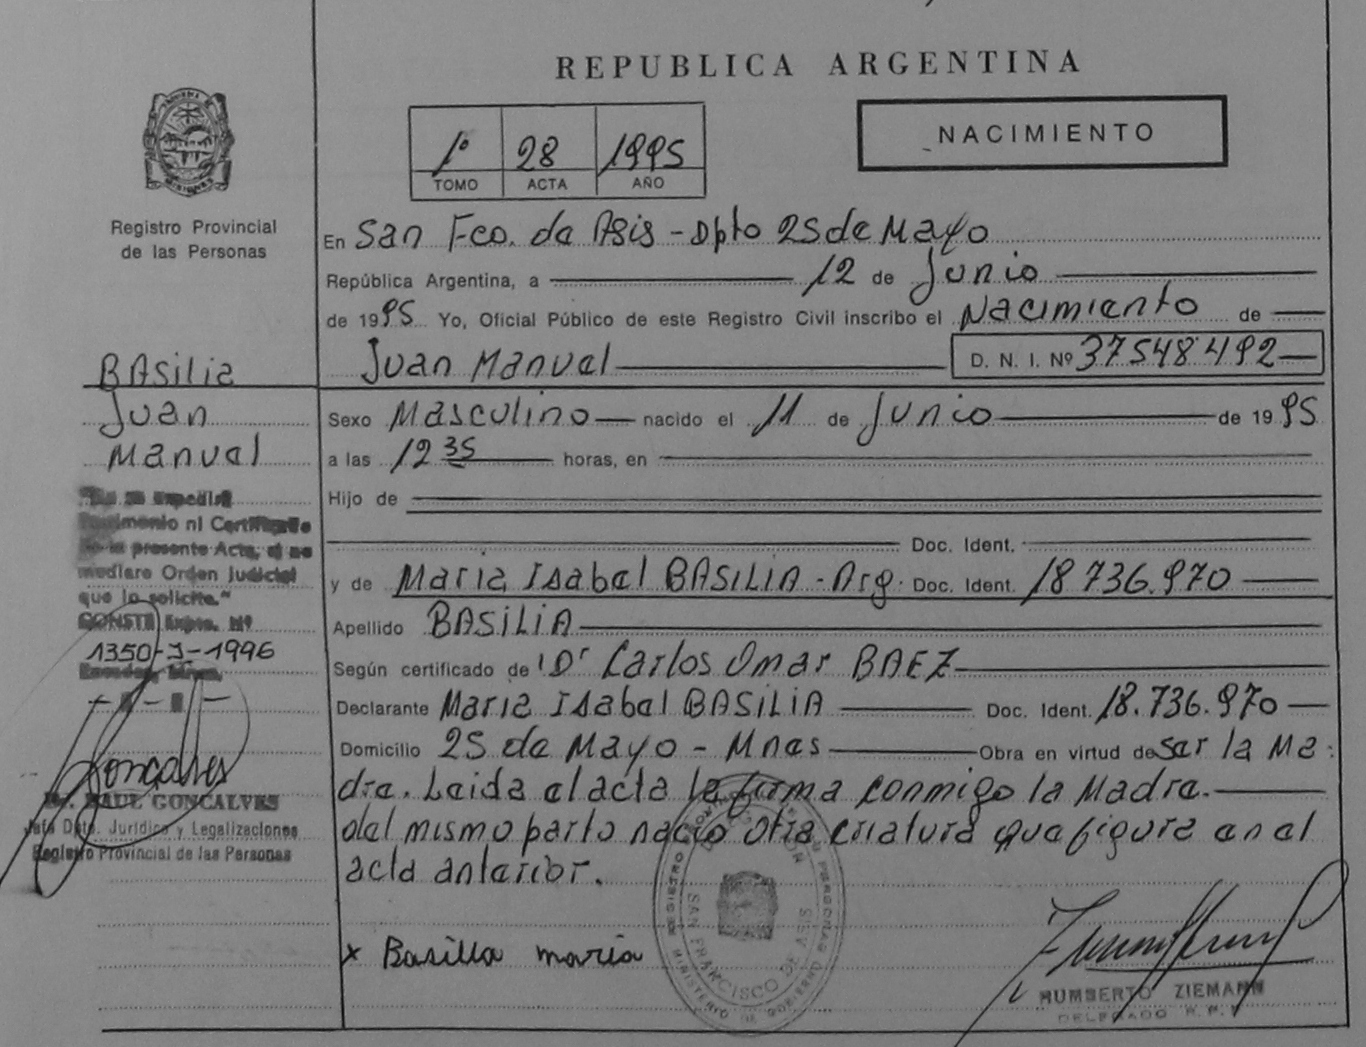 REPUBLICA ARGENTINA
1º 28 1995
TOMO ACTA AÑO
NACIMIENTO
Registro Provincial
de las Personas
En San Fco. de Asis - Dpto 25 de Mayo
República Argentina, a 12 de Junio
de 1995 Yo, Oficial Público de este Registro Civil inscribo el Nacimiento de
Juan Manuel D. N. I. Nº 37548492
BASilia
Juan
Manuel
Sexo Masculino nacido el 11 de Junio de 1995
a las 12 35 horas, en
Hijo de
Doc. Ident.
y de Maria Isabel BASILIA - Arg. Doc. Ident. 18736.970
Apellido BASILIA
Según certificado de Dr Carlos Omar BAEZ
Declarante Maria Isabel BASILIA Doc. Ident. 18.736.970
Domicilio 25 de Mayo - Mnes Obra en virtud de ser la Ma
dre. Leida el acta la firma conmigo la Madre.
del mismo parto nació otra criatura que figura en el
acta anterior.
"No se expedirá
Testimonio ni Certificado
de la presente Acta, si no
mediare Orden Judicial
que lo solicite."
CONSTE Expte. Nº
1350-J-1996
Goncalves
Dr. RAUL GONCALVES
Jefe Dpto. Jurídico y Legalizaciones
Registro Provincial de las Personas
x Basilia maria
SAN FRANCISCO DE ASIS
MINISTERIO DE GOBIERNO
HUMBERTO ZIEMANN
DELEGADO R. P.